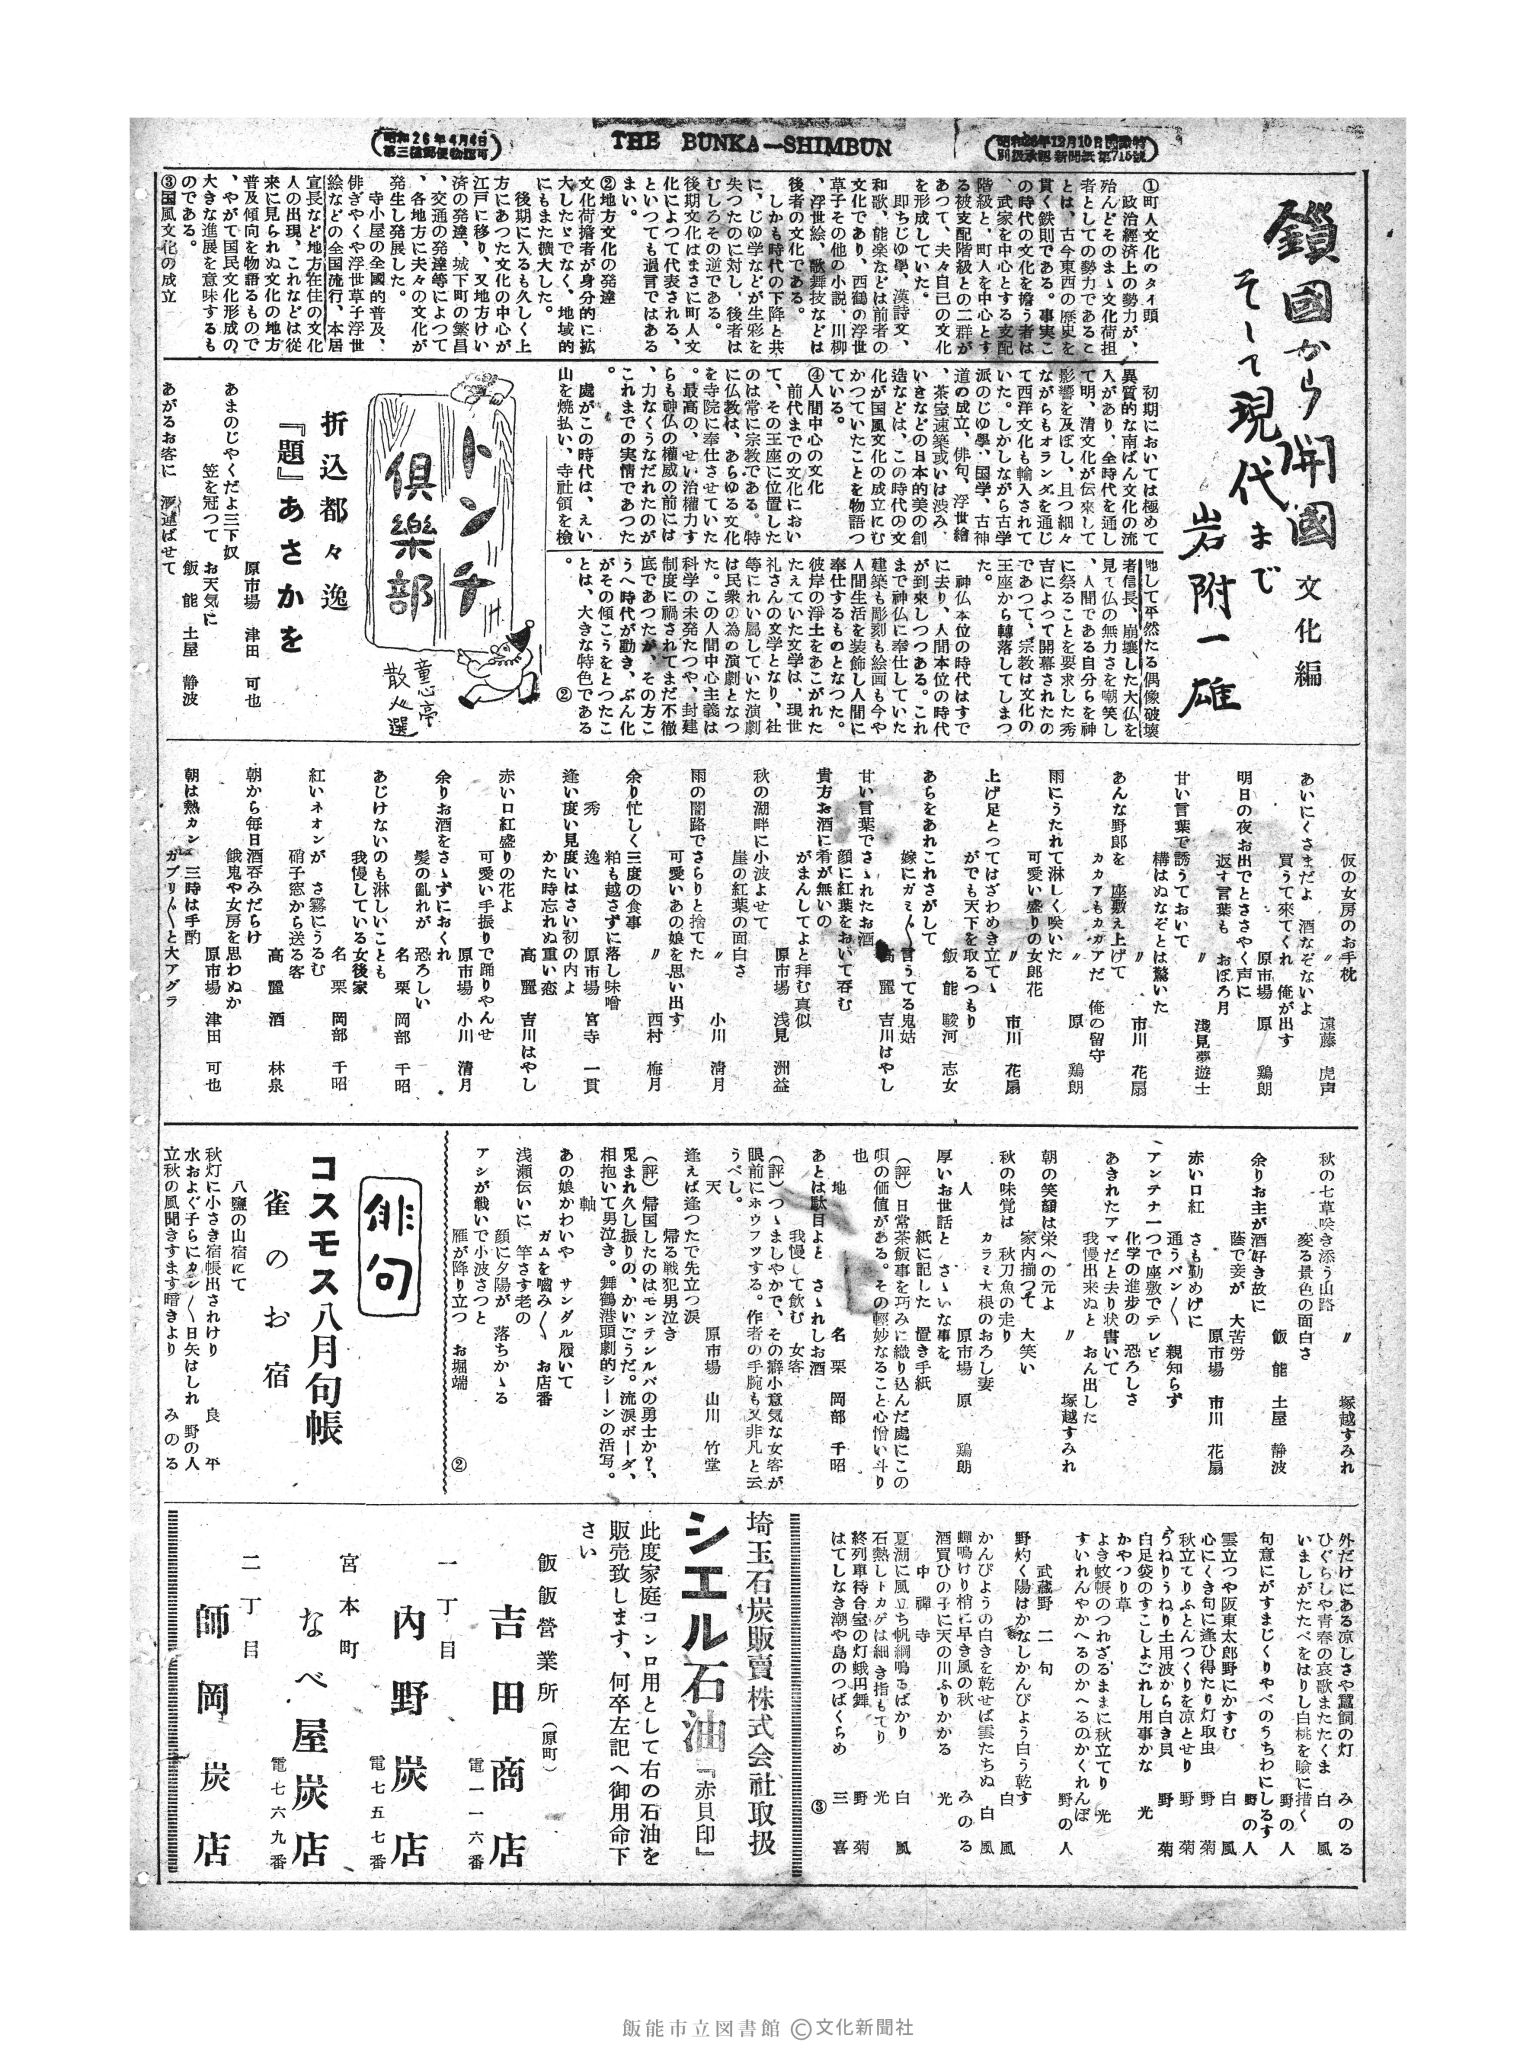 昭和26年4月4日
第三種郵便物認可
THE BUNKA—SHIMBUN
鎖國から開國
そして現代まで
文化編
岩附一雄
①町人文化のタイ頭
政治経済上の勢力が、
殆んどそのまゝ文化荷担
者としての勢力であるこ
とは、古今東西の歴史を
貫く鉄則である。事実こ
の時代の文化を擔う者は
、武家を中心とする支配
階級と、町人を中心とす
る被支配階級との二群が
あつて、夫々自己の文化
を形成していた。
即ちじゆ學、漢詩文、
和歌、能楽などは前者の
文化であり、西鶴の浮世
草子その他の小説、川柳
、浮世絵、歌舞技などは
後者の文化である。
しかも時代の下降と共
に、じゆ学などが生彩を
失つたのに対し、後者は
むしろその逆である。
後期文化はまさに町人文
化によつて代表される、
といつても過言ではある
まい。
②地方文化の発達
文化荷擔者が身分的に拡
大したゞでなく、地域的
にもまた擴大した。
後期に入るも久しく上
方にあつた文化の中心が
江戸に移り、又地方けい
済の発達、城下町の繁昌
、交通の発達等によつて
、各地方に夫々の文化が
発生し発展した。
寺小屋の全國的普及、
俳ぎやくや浮世草子浮世
絵などの全国流行、本居
宣長など地方在住の文化
人の出現、これなどは從
来に見られぬ文化の地方
普及傾向を物語るもので
、やがて国民文化形成の
大きな進展を意味するも
のである。
③国風文化の成立
初期においては極めて
異質的な南ばん文化の流
入があり、全時代を通し
て明、清文化が伝来して
影響を及ぼし、且つ細々
ながらもオランダを通じ
て西洋文化も輸入されて
いた。しかしながら古学
派のじゆ學、国学、古神
道の成立、俳句、浮世繪
、茶室速築或いは渋み、
いきなどの日本的美の創
造などは、この時代の文
化が国風文化の成立にむ
かつていたことを物語つ
ている。
④人間中心の文化
前代までの文化におい
て、その王座に位置した
のは常に宗教である。特
に仏教は、あらゆる文化
を寺院に奉仕させていた
。最高の、せい治權力す
らも神仏の權威の前には
、力なくうなだれたのが
これまでの実情であつた
。
處がこの時代は、えい
山を焼払い、寺社領を檢
地して平然たる偶像破壊
者信長、崩壊した大仏を
見て仏の無力さを嘲笑し
、人間である自分らを神
に祭ることを要求した秀
吉によつて開幕されたの
であつて、宗教は文化の
王座から轉落してしまつ
た。
神仏本位の時代はすで
に去り、人間本位の時代
が到来しつつある。これ
まで神仏に奉仕していた
建築も彫刻も絵画も今や
人間生活を装飾し人間に
奉仕するものとなつた。
彼岸の浄土をあこがれた
たえていた文学は、現世
礼さんの文学となり、社
等にれい属していた演劇
は民衆の為の演劇となつ
た。この人間中心主義は
科学の未発たつや、封建
制度に禍されてまだ不徹
底であつたが、その方こ
うへ時代が動き、ぶん化
がその傾こうをとつたこ
とは、大きな特色である
。
②
トンチ
倶樂部
童心亭
散人選
折込都々逸
『題』あさかを
原市場 津田 可也
あまのじやくだよ三下奴
笠を冠つて お天気に
飯能 土屋 静波
あがるお客に 酒運ばせて
仮の女房のお手枕
〃 遠藤 虎声
あいにくさまだよ 酒なぞないよ
買うて來てくれ 俺が出す
原市場 原 鶏朗
明日の夜お出でとささやく声に
返す言葉も おぼろ月
〃 浅見夢遊士
甘い言葉で誘うておいて
構はぬなぞとは驚いた
〃 市川 花扇
あんな野郎を 座敷え上げて
カカアもカカアだ 俺の留守
〃 原 鶏朗
雨にうたれて淋しく咲いた
可愛い盛りの女郎花
〃 市川 花扇
上げ足とつてはざわめき立てゝ
がでも天下を取るつもり
飯能 駿河 志女
あらをあれこれさがして
嫁にガミ〳〵言うてる鬼姑
高麗 吉川はやし
甘い言葉で さゝれたお酒
顔に紅葉をおいて呑む
貴方お酒に肴が無いの
がまんしてよと拜む真似
原市場 浅見 洲益
秋の湖畔に小波よせて
崖の紅葉の面白さ
〃 小川 清月
雨の闇路でさらりと捨てた
可愛いあの娘を思い出す
〃 西村 梅月
余り忙しく三度の食事
粕も越さずに落し味噌
秀逸
原市場 宮寺 一貫
逢い度い見度いはさい初の内よ
かた時忘れぬ重い恋
高麗 吉川はやし
赤い口紅盛りの花よ
可愛い手振りで踊りやんせ
原市場 小川 清月
余りお酒をさゝずにおくれ
髪の亂れが 恐ろしい
名栗 岡部 千昭
あじけないのも淋しいことも
我慢している女後家
名栗 岡部 千昭
紅いネオンが さ霧にうるむ
硝子窓から送る客
高麗 酒 林泉
朝から毎日酒呑みだらけ
餓鬼や女房を思わぬか
原市場 津田 可也
朝は熱カン 三時は手酌
ガブリ〳〵と大アグラ
〃 塚越すみれ
秋の七草咲き添う山路
変る景色の面白さ
飯能 土屋 静波
余りお主が酒好き故に
蔭で妾が 大苦労
原市場 市川 花扇
赤い口紅 さも勤めげに
通うパン〳〵 親知らず
アンテナ一つで座敷でテレビ
化学の進歩の 恐ろしさ
あきれたアマだと去り状書いて
我慢出来ぬと おん出した
〃 塚越すみれ
朝の笑顔は栄への元よ
家内揃つて 大笑い
秋の味覚は 秋刀魚の走り
カラミ大根のおろし妻
人
原市場 原 鶏朗
厚いお世話と さゝいな事を
紙に記した 置き手紙
(評)日常茶飯事を巧みに織り込んだ處にこの
唄の価値がある。その輕妙なること心憎い斗り
也
地
名栗 岡部 千昭
あとは駄目よと さゝれしお酒
我慢して飲む 女客
(評)つゝましやかで、その癖小意気な女客が
眼前にホウフツする。作者の手腕も又非凡と云
うべし。
天
原市場 山川 竹堂
逢えば逢つたで先立つ涙
帰る戦犯男泣き
(評)帰国したのはモンテンルパの勇士か?、
兎まれ久し振りの、かいごうだ。流涙ボーダ、
相抱いて男泣き。舞鶴港頭劇的シーンの活写。
軸
あの娘かわいや サンダル履いて
ガムを噛み〳〵 お店番
浅瀬伝いに 竿さす老の
顔に夕陽が 落ちかゝる
アシが戦いで小波さつと
雁が降り立つ お堀端
②
俳句
コスモス八月句帳
雀のお宿
八鹽の山宿にて
秋灯に小さき宿帳出されけり 良平
水およぐ子らにカン〳〵日矢はしれ 野の人
立秋の風聞きすます暗きより みのる
外だけにある凉しさや蠶飼の灯 みのる
ひぐらしや青春の哀歌またたくま 白風
いましがたたべをはりし白桃を瞼に措く 野の人
句意にがすまじくりやべのうちわにしるす 野の人
雲立つや阪東太郎野にかすむ 白風
心にくき句に逢ひ得たり灯取虫 野菊
秋立てりふとんつくりを凉とせり 野菊
うねりうねり土用波から白き貝 野菊
白足袋のすこしよごれし用事かな 光
かやつり草
よき蚊帳のつれざるままに秋立てり 光
すいれんやかへるのかへるのかくれんぼ 野の人
武蔵野二句
野灼く陽はかなしかんぴよう白う乾す 白風
かんぴようの白きを乾せば雲たちぬ 白風
蝉鳴けり梢に早き風の秋 みのる
酒買ひの子に天の川ふりかかる 光
中禪寺
夏湖に風立ち帆綱鳴るばかり 白風
石熱しトカゲは細き指もてり 光
終列車待合室の灯蛾円舞 野菊
はてしなき潮や島のつばくらめ 三喜
③
埼玉石炭販賣株式会社取扱
シエル石油『赤貝印』
此度家庭コンロ用として右の石油を
販売致します、何卒左記へ御用命下
さい
飯能営業所(原町)
吉田商店
電一一六番
一丁目
内野炭店
電七五七番
宮本町
なべ屋炭店
電七六九番
二丁目
師岡炭店
飯能市立図書館 ©文化新聞社